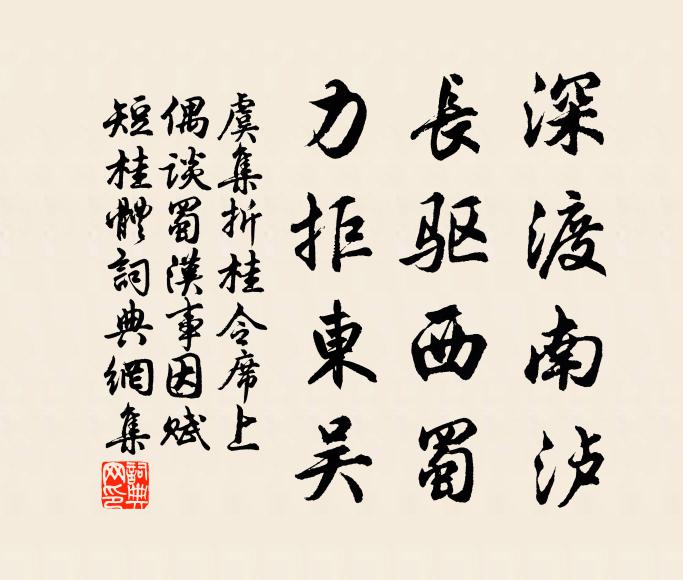 深渡南泸
長驱西蜀
力拒東吴
虞集折桂令席上
偶谈蜀漢事因赋
短桂體詞典網集
詞典网印